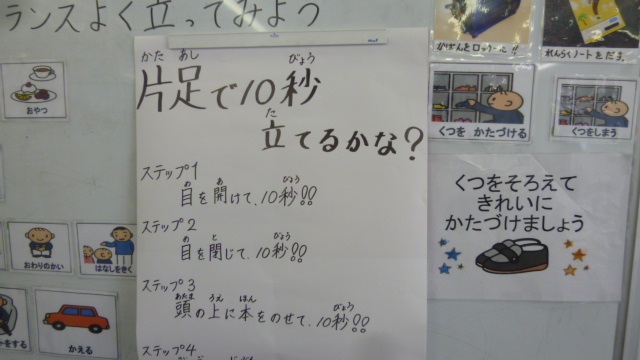 ランスよく立ってみよう
かた あし びょう
片足で10秒
た
立てるかな?
ステップ1
め あ びょう
目を開けて、10秒!!
ステップ2
め と びょう
目を閉じて、10秒!!
ステップ3
あたま うえ ほん びょう
頭の上に本をのせて、10秒!!
ステップ4
おやつ
おわりのかい
はなしをきく
をする
かえる
かばんをロッカーへ!!
れんらくノートをだす。
くつを かたづける
くつをしまう
くつをそろえて
きれいに
かたづけましょう